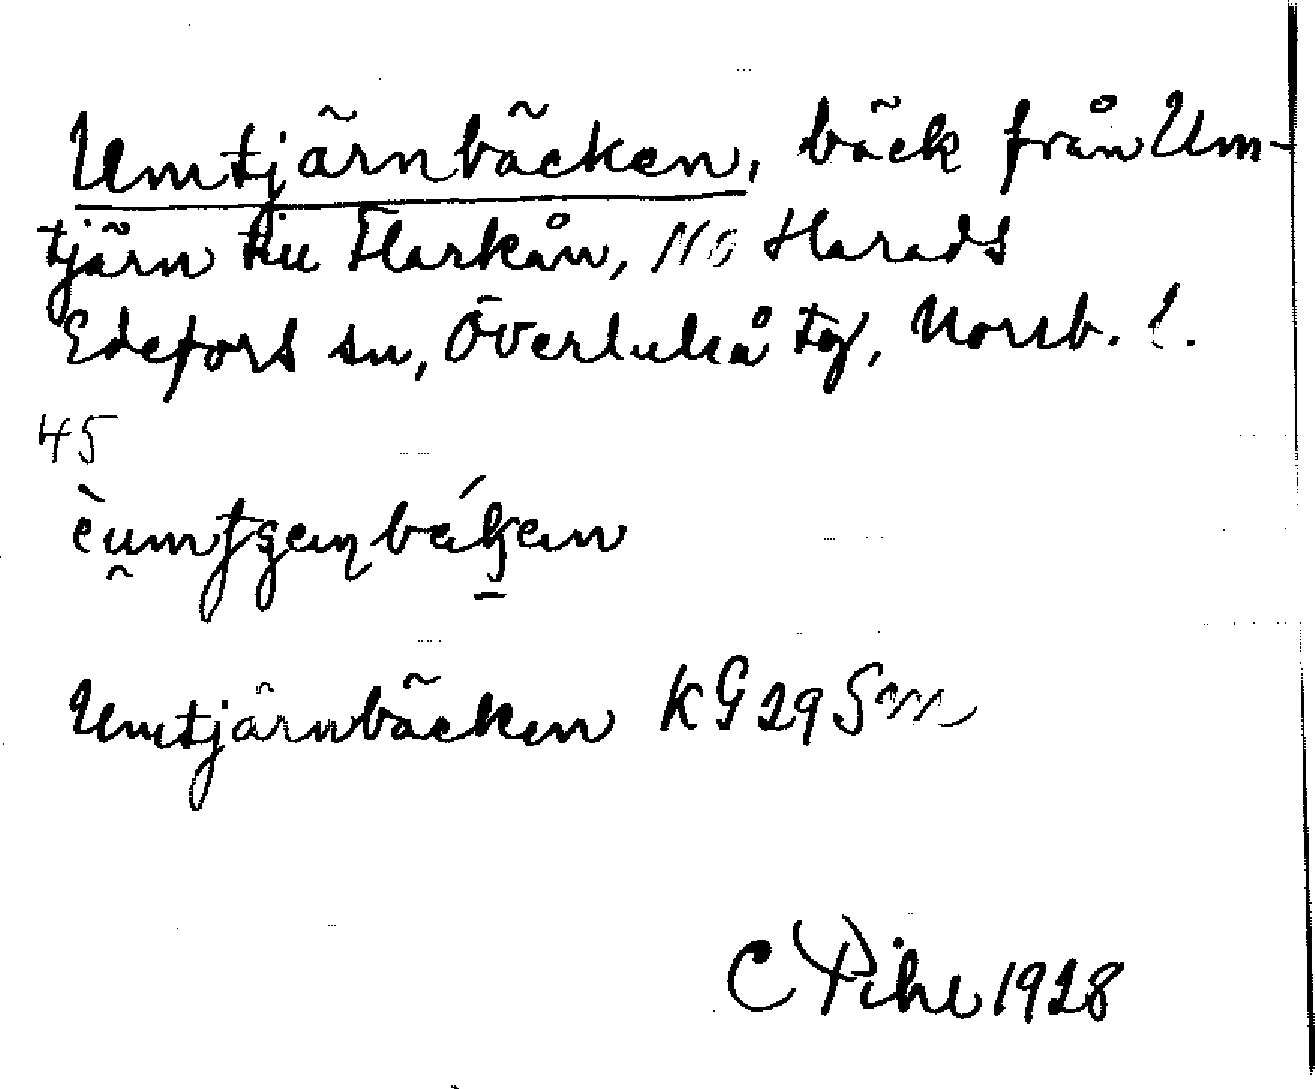 Umtjärnbäcken, bäck från Um-
tjärn till Flarkån, NO Harads
Edefors sn, Överluleå tg, Norrb. l.
45
Umtjärnbäcken KG 29 Sm
C Pihl 1928